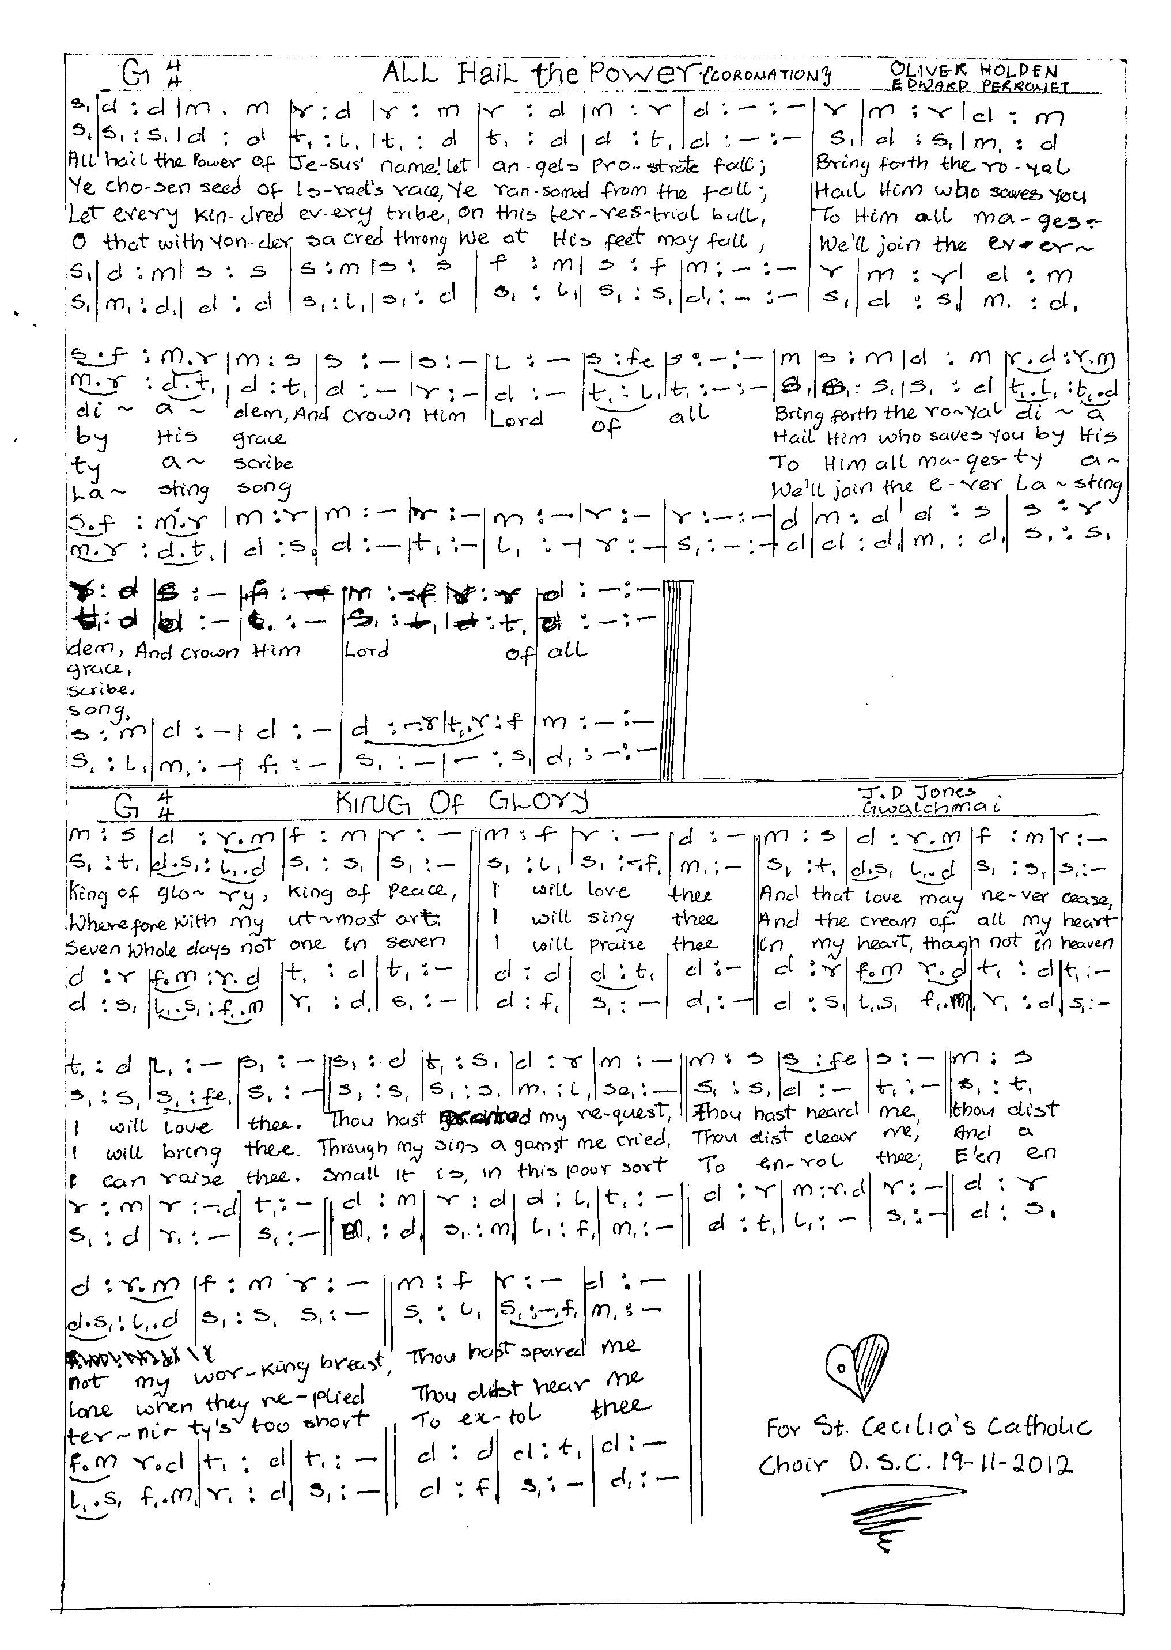 G 4/4 ALL Hail the Power {CORONATION} OLIVER HOLDEN
EDWARD PERRONET
s₁|d : d|m . m |r : d |r : m |r : d |m : r |d : - : - |r |m : r |d : m
s₁|s₁ : s₁|d : d |t₁ : l₁ |t₁ : d |t₁ : d |d : t₁ |d : - : - |s₁ |d : s₁|m₁ : d
All hail the Power of Je-sus' name! let an-gels Pro-strate fall; Bring forth the ro-yal
Ye cho-sen seed of Is-rad's race, Ye ran-somed from the fall; Hail Him who saves you
Let every kin-dred ev-ery tribe, on this ter-res-trial bull, To Him all ma-ges-
O that with yon-der sa cred throng We at His feet may fall, We'll join the ev-er~
s₁|d : m|s : s |s : m |s : s |f : m |s : f |m : - : - |r |m : r |d : m
s₁|m₁ : d₁|d : d |s₁ : l₁|s₁ : d |s₁ : l₁|s₁ : s₁|d₁ : - : - |s₁|d : s₁|m₁ : d₁
s.f : m.r |m : s |s : - |s : - |l : - |s : fe |s : - : - |m |s : m |d : m |r.d : r.m
m.r : d.t₁ |d : t₁|d : - |r : - |d : - |t₁ : l₁|t₁ : - : - |s₁ : s₁|s₁ : d |t₁.l₁ : t₁.d
di ~ a ~ dem, And crown Him Lord of all Bring forth the ro~yal di ~ a
by His grace Hail Him who saves you by His
ty a~ scribe To Him all ma-ges-ty a~
La~ sting song We'll join the e-ver La~sting
s.f : m.r |m : r |m : - |r : - |m : - |r : - |r : - : - |d |m : d |d : s |s : r
m.r : d.t₁ |d : s₁|d : - |t₁ : - |l₁ : - |r : - |s₁ : - : - |d |d : d₁|m₁ : d₁|s₁ : s₁
r : d |s : - |f : - |m : -f |r : r |d : - : -
t₁ : d |d : - |t₁ : - |s₁ : t₁ |d : t₁ |d : - : -
dem, And crown Him Lord of all
grace,
scribe.
song,
s : m|d : - |d : - |d : -r|t₁.r : f |m : - : -
s₁ : l₁|m₁ : - |f₁ : - |s₁ : - |- : s₁|d₁ : - : -
G 4/4 KING OF GLORY J.D Jones
Gwalchmai
m : s |d : r.m |f : m |r : - |m : f |r : - |d : - |m : s |d : r.m |f : m |r : -
s₁ : t₁|d.s₁ : l₁.d |s₁ : s₁|s₁ : - |s₁ : l₁|s₁ : -f₁|m₁ : - |s₁ : t₁|d.s₁ l₁.d |s₁ : s₁|s₁ : -
King of glo~ry, King of Peace, I will love thee And that love may ne-ver cease,
Wherefore with my ut~most art. I will sing thee And the cream of all my heart
Seven Whole days not one in seven I will praise thee In my heart, though not in heaven
d : r |f.m : r.d |t₁ : d |t₁ : - |d : d |d : t₁ |d : - |d : r |f.m r.d |t₁ : d |t₁ : -
d : s₁|l₁.s₁ : f₁.m |r₁ : d₁|s₁ : - |d : f₁|s₁ : - |d₁ : - |d : s₁|l₁.s₁ f₁.m₁|r₁ : d₁|s₁ : -
t₁ : d |l₁ : - |s₁ : - |s₁ : d |t₁ : s₁|d : r |m : - |m : s |s : fe |s : - |m : s
s₁ : s₁|s₁ : fe₁|s₁ : - |s₁ : s₁|s₁ : s₁|m₁ : l₁|se₁ : - |s₁ : s₁|d : - |t₁ : - |s₁ : t₁
I will love thee. Thou hast my re-quest, Thou hast heard me, thou dist
I will bring thee. Through my sins a gamst me cried, Thou dist clear me, And a
I can raise thee. Small it is, in this pour sort To en-rol thee; E'en en
r : m |r : -d |t₁ : - |d : m |r : d |d : l₁|t₁ : - |d : r |m : r.d |r : - |d : r
s₁ : d |r₁ : - |s₁ : - |m₁ : d₁|s₁ : m₁|l₁ : f₁|m₁ : - |d : t₁|l₁ : - |s₁ : - |d : s₁
d : r.m |f : m r : - |m : f |r : - |d : -
d.s₁ : l₁.d |s₁ : s₁ s₁ : - |s₁ : l₁|s₁ : -.f₁|m₁ : -
not my wor-king breast, Thou hast spared me
lone when they re-plied Thou didst hear me
ter~nir~ty's too short To ex-tol thee
f.m r.d |t₁ : d |t₁ : - |d : d d : t₁|d : -
l₁.s₁ f₁.m₁|r₁ : d |s₁ : - |d : f |s₁ : - |d₁ : -
For St. Cecilia's Catholic
Choir D.S.C. 19-11-2012